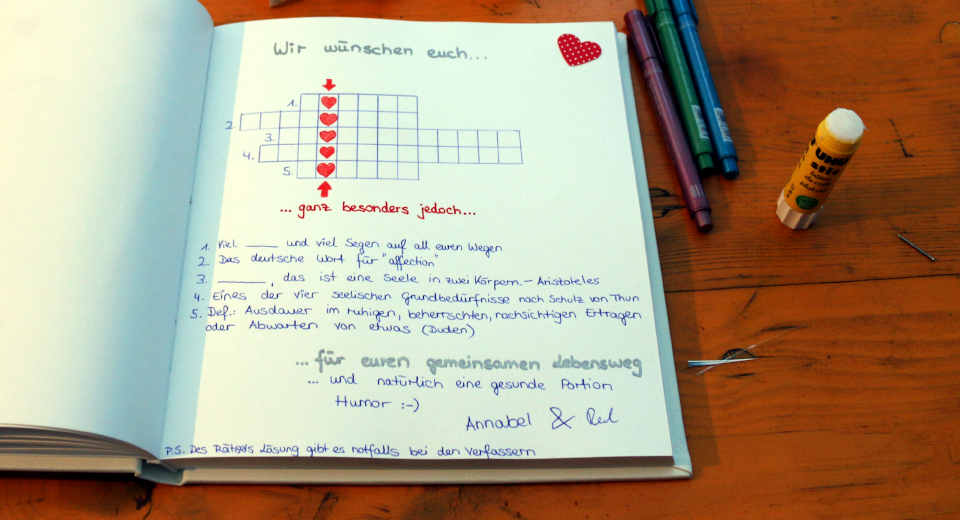 Wir wünschen euch...
1.
2.
3.
4.
5.
... ganz besonders jedoch...
1. Viel ____ und viel Segen auf all euren Wegen
2. Das deutsche Wort für "affection"
3. ____, das ist eine Seele in zwei Körpern. - Aristoteles
4. Eines der vier seelischen Grundbedürfnisse nach Schulz von Thun
5. Def.: Ausdauer im ruhigen, beherrschten, nachsichtigen Ertragen
oder Abwarten von etwas (Duden)
...für euren gemeinsamen Lebensweg
... und natürlich eine gesunde Portion
Humor :-)
Annabel &
P.S. Des Rätsels Lösung gibt es notfalls bei den Verfassern
UHU
stic